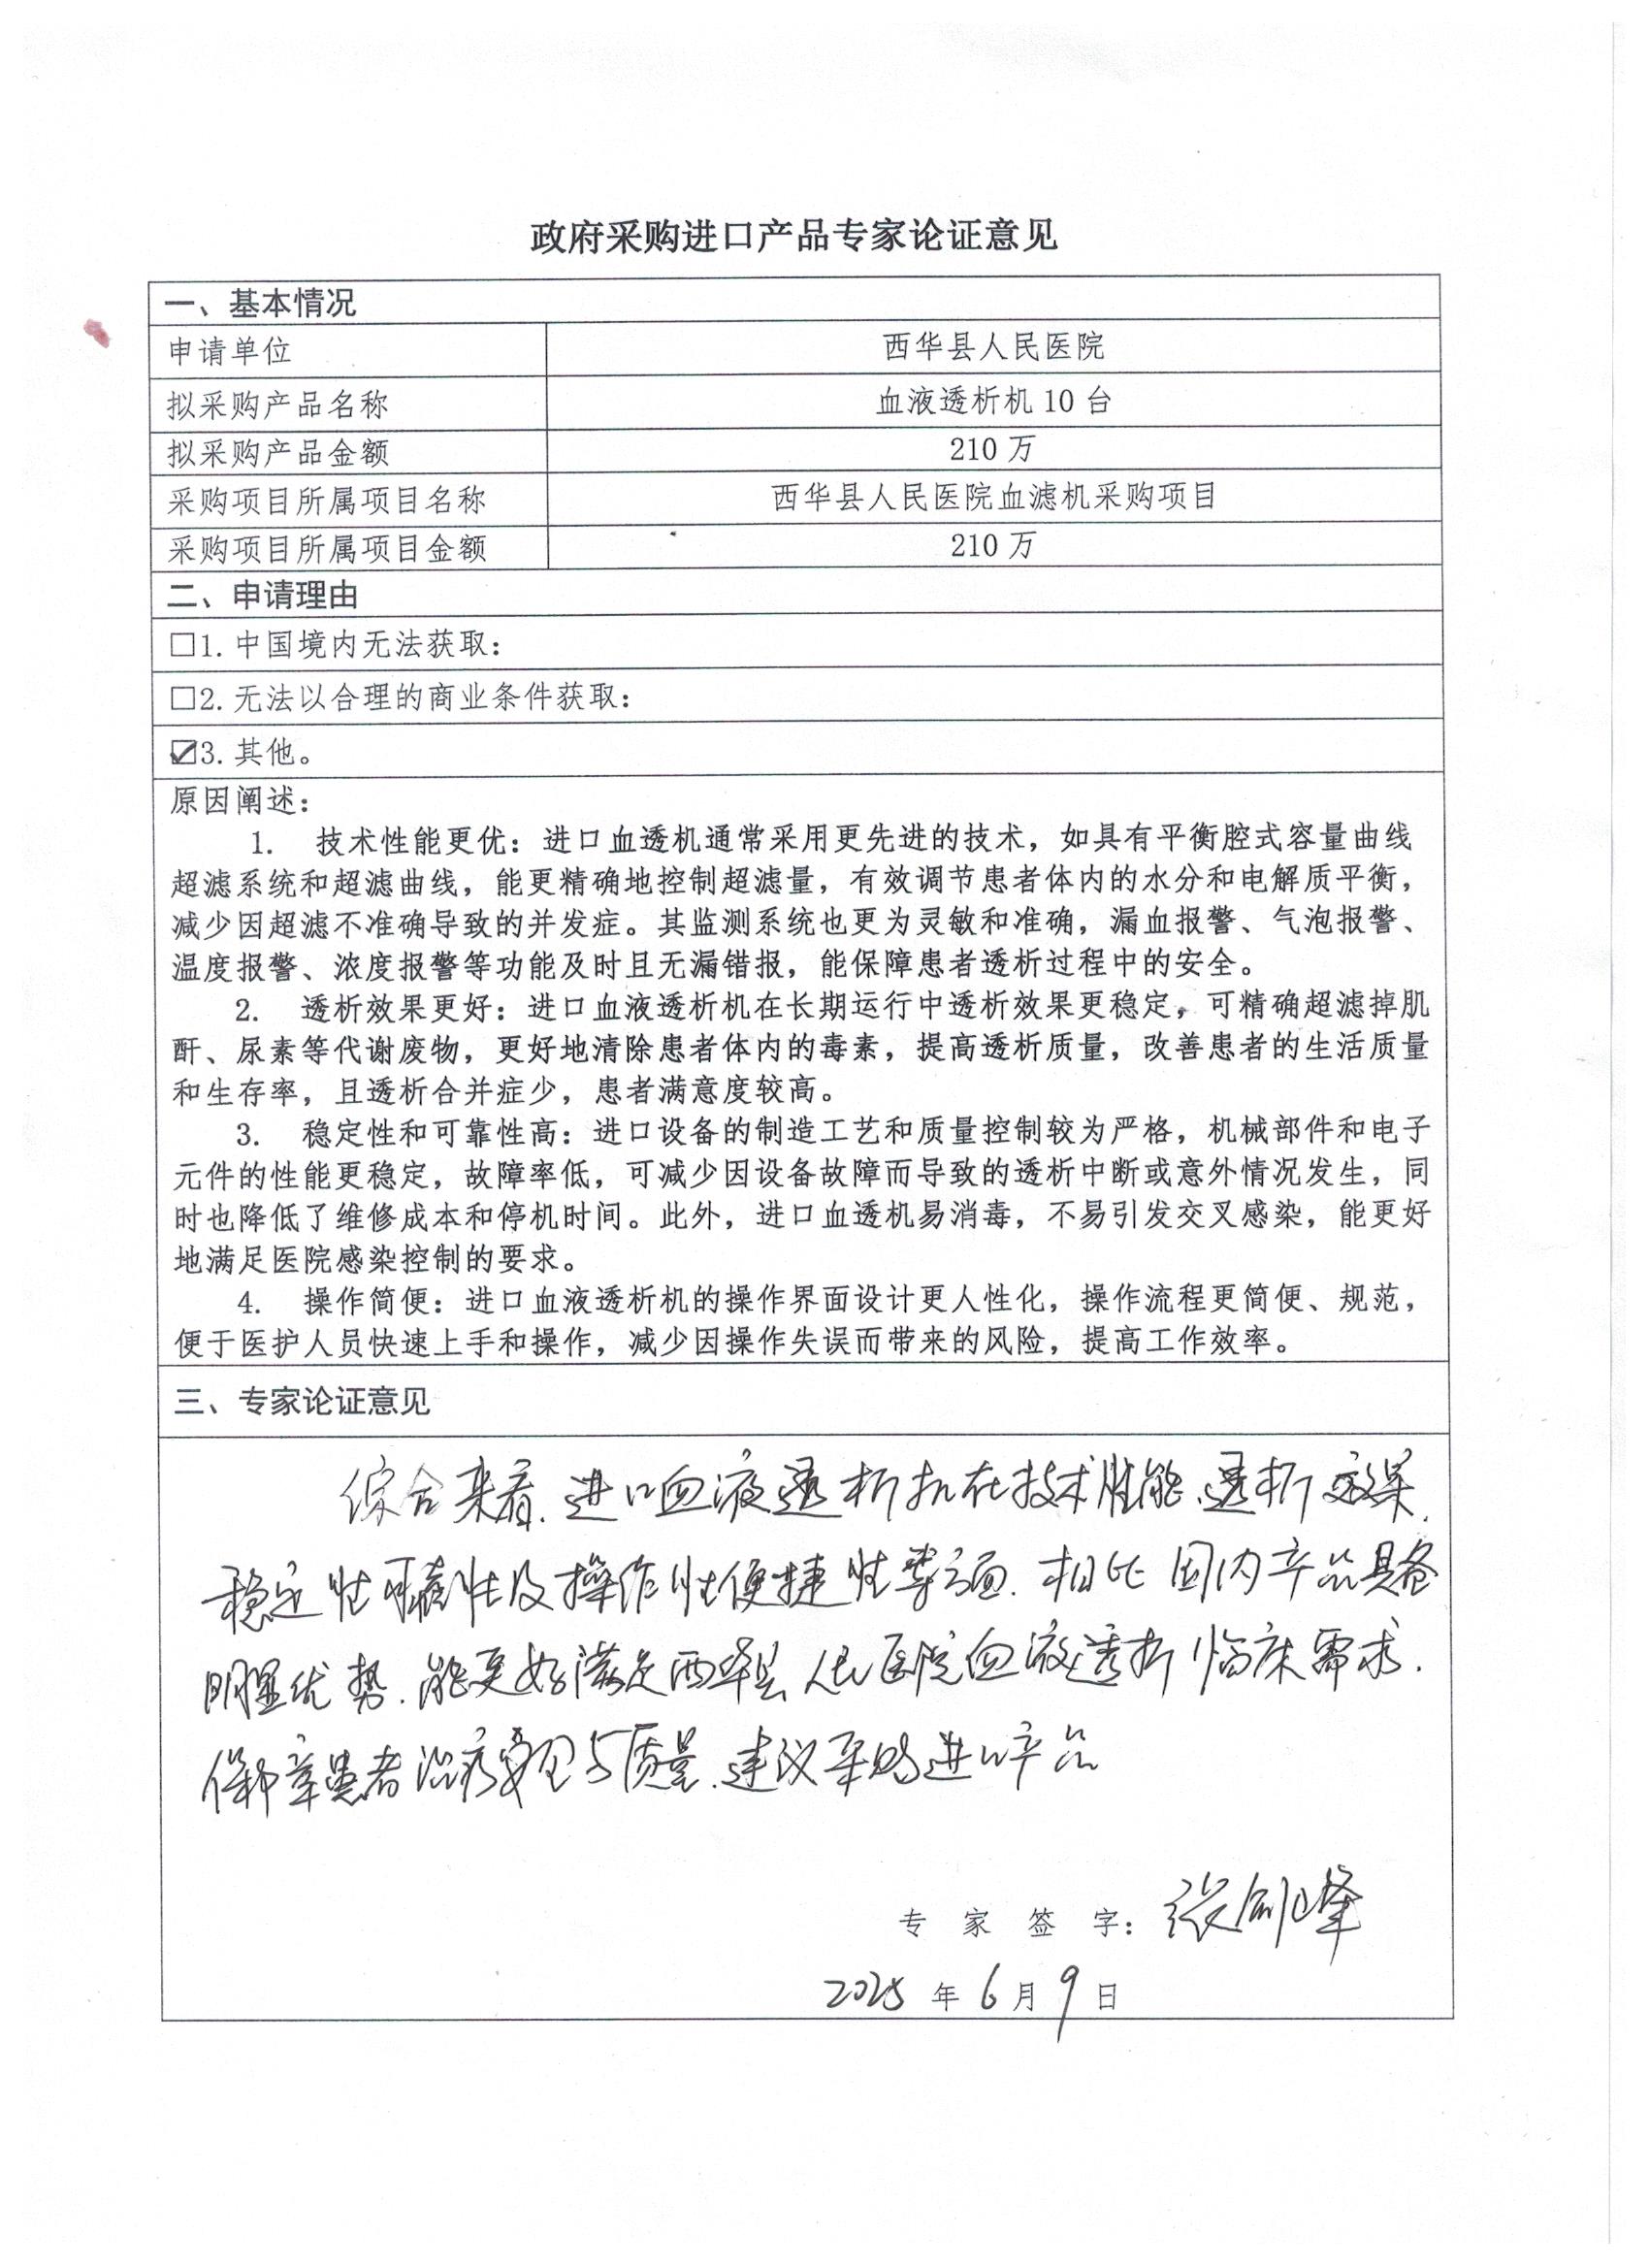 政府采购进口产品专家论证意见
一、基本情况
申请单位 西华县人民医院
拟采购产品名称 血液透析机10台
拟采购产品金额 210万
采购项目所属项目名称 西华县人民医院血滤机采购项目
采购项目所属项目金额 210万
二、申请理由
□1.中国境内无法获取：
□2.无法以合理的商业条件获取：
☑3.其他。
原因阐述：
1. 技术性能更优：进口血透机通常采用更先进的技术，如具有平衡腔式容量曲线
超滤系统和超滤曲线，能更精确地控制超滤量，有效调节患者体内的水分和电解质平衡，
减少因超滤不准确导致的并发症。其监测系统也更为灵敏和准确，漏血报警、气泡报警、
温度报警、浓度报警等功能及时且无漏错报，能保障患者透析过程中的安全。
2. 透析效果更好：进口血液透析机在长期运行中透析效果更稳定，可精确超滤掉肌
酐、尿素等代谢废物，更好地清除患者体内的毒素，提高透析质量，改善患者的生活质量
和生存率，且透析合并症少，患者满意度较高。
3. 稳定性和可靠性高：进口设备的制造工艺和质量控制较为严格，机械部件和电子
元件的性能更稳定，故障率低，可减少因设备故障而导致的透析中断或意外情况发生，同
时也降低了维修成本和停机时间。此外，进口血透机易消毒，不易引发交叉感染，能更好
地满足医院感染控制的要求。
4. 操作简便：进口血液透析机的操作界面设计更人性化，操作流程更简便、规范，
便于医护人员快速上手和操作，减少因操作失误而带来的风险，提高工作效率。
三、专家论证意见
综合来看，进口血液透析机在技术性能、透析效果、
稳定性可靠性及操作性便捷性等方面，相比国内产品具备
明显优势，能更好满足西华县人民医院血液透析临床需求，
保障患者治疗安全与质量，建议采购进口产品
专家签字：张剑峰
2025年6月9日